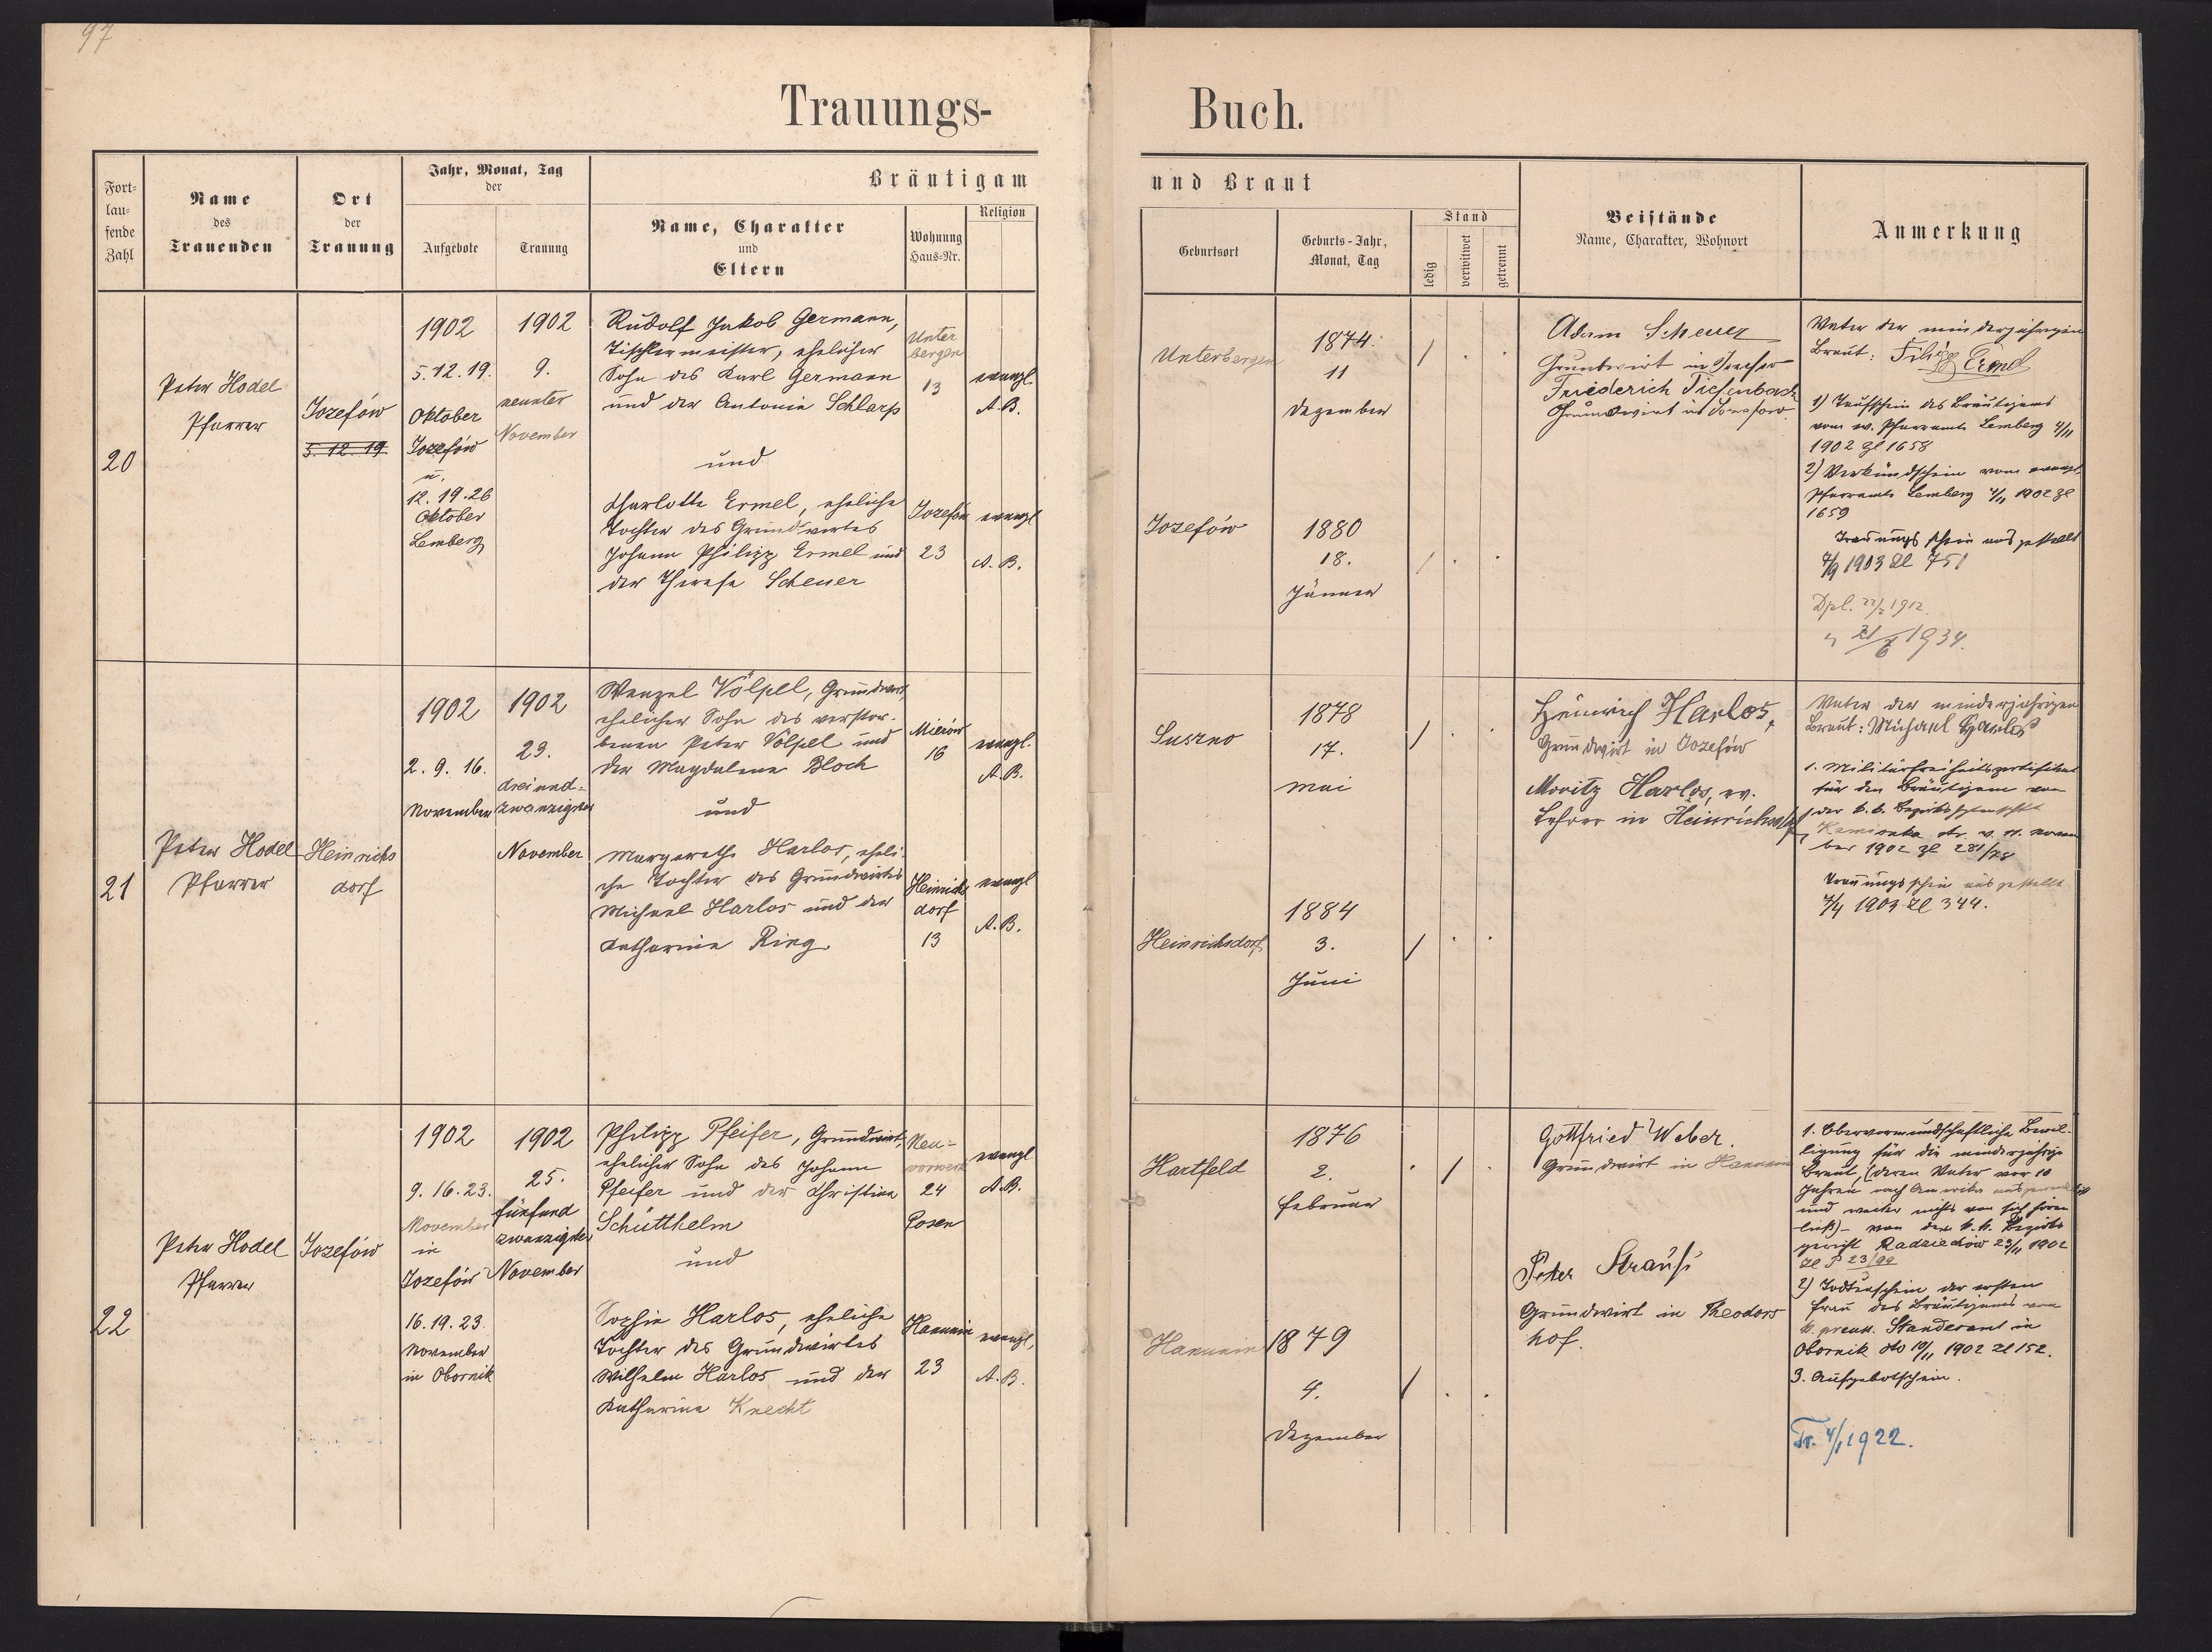 97
Trauungs-
Buch.
Fort-
lau-
fende
Zahl
Name
des
Trauenden
Ort
der
Trauung
Jahr, Monat, Tag
der
Aufgebote
Trauung
Bräutigam
Name, Charakter
und
Eltern
Wohnung
Haus-Nr.
Religion
und Braut
Geburtsort
Geburts-Jahr,
Monat, Tag
Stand
ledig
verwitwet
getrennt
Beistände
Name, Charakter, Wohnort
Anmerkung
20
Peter Hodel
Pfarrer
Jozefów
5. 12. 19
1902
5. 12. 19.
Oktober
Jozefów
u.
12. 19. 26
Oktober
Lemberg
1902
9.
neunter
November
Rudolf Jakob Germann,
Tischlermeister, ehelicher
Sohn des Karl Germann
und der Antonie Schlarp
und
Charlotte Ermel, eheliche
Tochter des Grundwirtes
Johann Philipp Ermel und
der Therese Scheuer
Unter
bergen
13
Jozefów
23
evangl.
A. B.
evangl
A. B.
Unterbergen
Jozefów
1874.
11
Dezember
1880
18.
Jänner
Adam Scheuer
Grundwirt in Josefow
Friederich Tiefenbach
Grundwirt in Josefow
Vater der minderjährigen
Braut: Filipp Ermel
1) Taufschein des Bräutigams
vom ev. Pfarramte Lemberg 4/11
1902 Zl 1658
2) Verkündschein vom evangl
Pfarramte Lemberg 4/11 1902 Zl
1659
Trauungsschein ausgestellt
4/9 1903 Zl 751
Dpl. 22/2 1912.
" 21/6 1934.
21
Peter Hodel
Pfarrer
Heinrichs
dorf
1902
2. 9. 16.
November
1902
23.
dreiund-
zwanzigster
November
Wenzel Völpel, Grundwirt,
ehelicher Sohn des verstor-
benen Peter Völpel und
der Magdalena Bloch
und
Margarethe Harlos, eheli-
che Tochter des Grundwirtes
Michael Harlos und der
Katharina Ring.
Mierów
16
Heinrichs
dorf
13
evangl.
A. B.
evangl
A. B.
Suszno
Heinrichsdorf
1878
17.
Mai
1884
3.
Juni
Heinrich Harlos,
Grundwirt in Jozefów
Moritz Harlos, ev.
Lehrer in Heinrichsdorf
Vater der minderjährigen
Braut: Michael Harlos
1. Militärfreiheitszertifikat
für den Bräutigam von
der k. k. Bezirkshptmschft
Kamionka str. v. 11. Novem
ber 1902 Zl 281/78
Trauungsschein ausgestellt
7/4 1903 Zl 344.
22
Peter Hodel
Pfarrer
Jozefów
1902
9. 16. 23.
November
in
Jozefów
16. 19. 23.
November
in Obornik
1902
25.
fünfund
zwanzigster
November
Philipp Pfeifer, Grundwirt,
ehelicher Sohn des Johann
Pfeifer und der Christina
Schütthelm
und
Sophie Harlos, eheliche
Tochter des Grundwirtes
Wilhelm Harlos und der
Katharina Knecht
Neu-
vorwerk
24
Posen
Hanunin
23
evangl
A. B.
evangl.
A. B.
Hartfeld
Hanunin
1876
2.
Februar
1879
4.
Dezember
Gottfried Weber.
Grundwirt in Hanunin
Peter Strauß
Grundwirt in Theodors
hof.
1. Obervormundschaftliche Bewil-
ligung für die minderjährige
Braut, (deren Vater vor 10
Jahren nach Amerika
und weiter nichts von sich hören
ließ) - von dem k. k. Bezirks
gericht Radziechów 23/11 1902
Zl P 23/99
2) Todtenschein der ersten
Frau des Bräutigams vom
k. preuss. Standesamt in
Obornik dto 10/11 1902 Zl 152.
3. Aufgebotschein.
Tr. 4/1 1922.